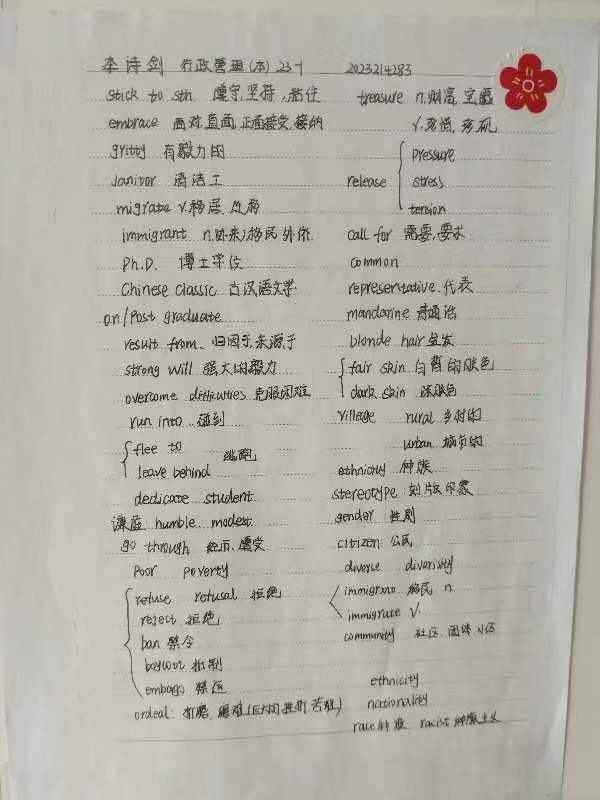 李诗剑 行政管理(本) 23-1 2023214283
stick to sth 遵守,坚持,粘住
embrace 面对,直面,正面接受,接纳
gritty 有毅力的
Janitor 清洁工
migrate v.移居
immigrant n.(外来)移民 外侨
Ph.D. 博士学位
Chinese Classic 古汉语文学
on/Post graduate
result from. 归因于,来源于
strong will 强大的毅力
overcome difficulties 克服困难
run into 碰到
flee to
leave behind 逃跑
dedicate student
谦虚 humble modest
go through 经历,遭受
Poor poverty
refuse refusal 拒绝
reject 拒绝
ban 禁令
boycott 抵制
embago 禁运
ordeal: 折磨,磨难(巨大的挫折,苦难)
treasure n.财富,宝藏
v.珍惜,珍视
release
pressure
stress
tension
call for 需要,要求
common
representative.代表
mandarine 普通话
blonde hair 金发
fair skin 白皙的肤色
dark skin 深肤色
village rural 乡村的
urban 城市的
ethnicity 种族
stereotype 刻版印象
gender 性别
citizen: 公民
diverse diversivity
immigrano 移民 n
immigrate v.
community 社区 团体 小区
ethnicity
nationality
race 种族 racist 种族主义